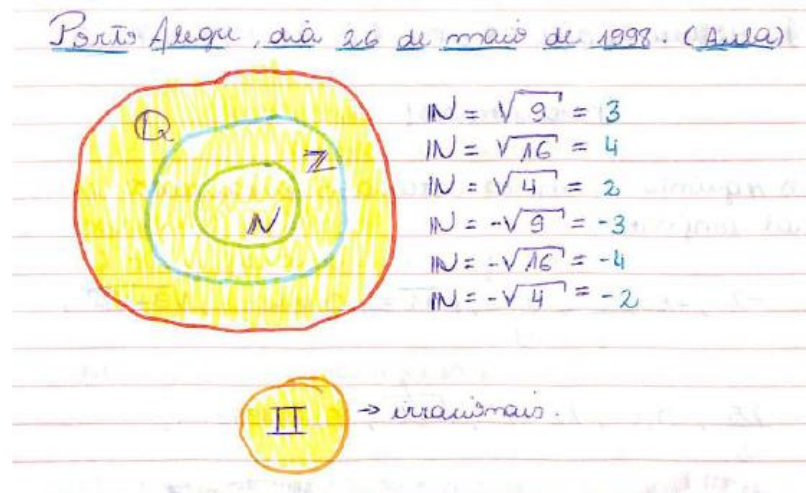 Porto Alegre, dia 26 de maio de 1998. (Aula)
Q
Z
N
IN = √9 = 3
IN = √16 = 4
IN = √4 = 2
IN = -√9 = -3
IN = -√16 = -4
IN = -√4 = -2
II → irracionais.